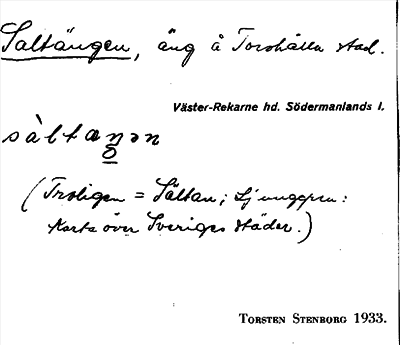 Saltängen, äng å Torshälla stad.
Väster-Rekarne hd. Södermanlands l.
sàltæŋən
(Troligen = Sältan; Ljunggren:
Karta över Sveriges städer.)
TORSTEN STENBORG 1933.